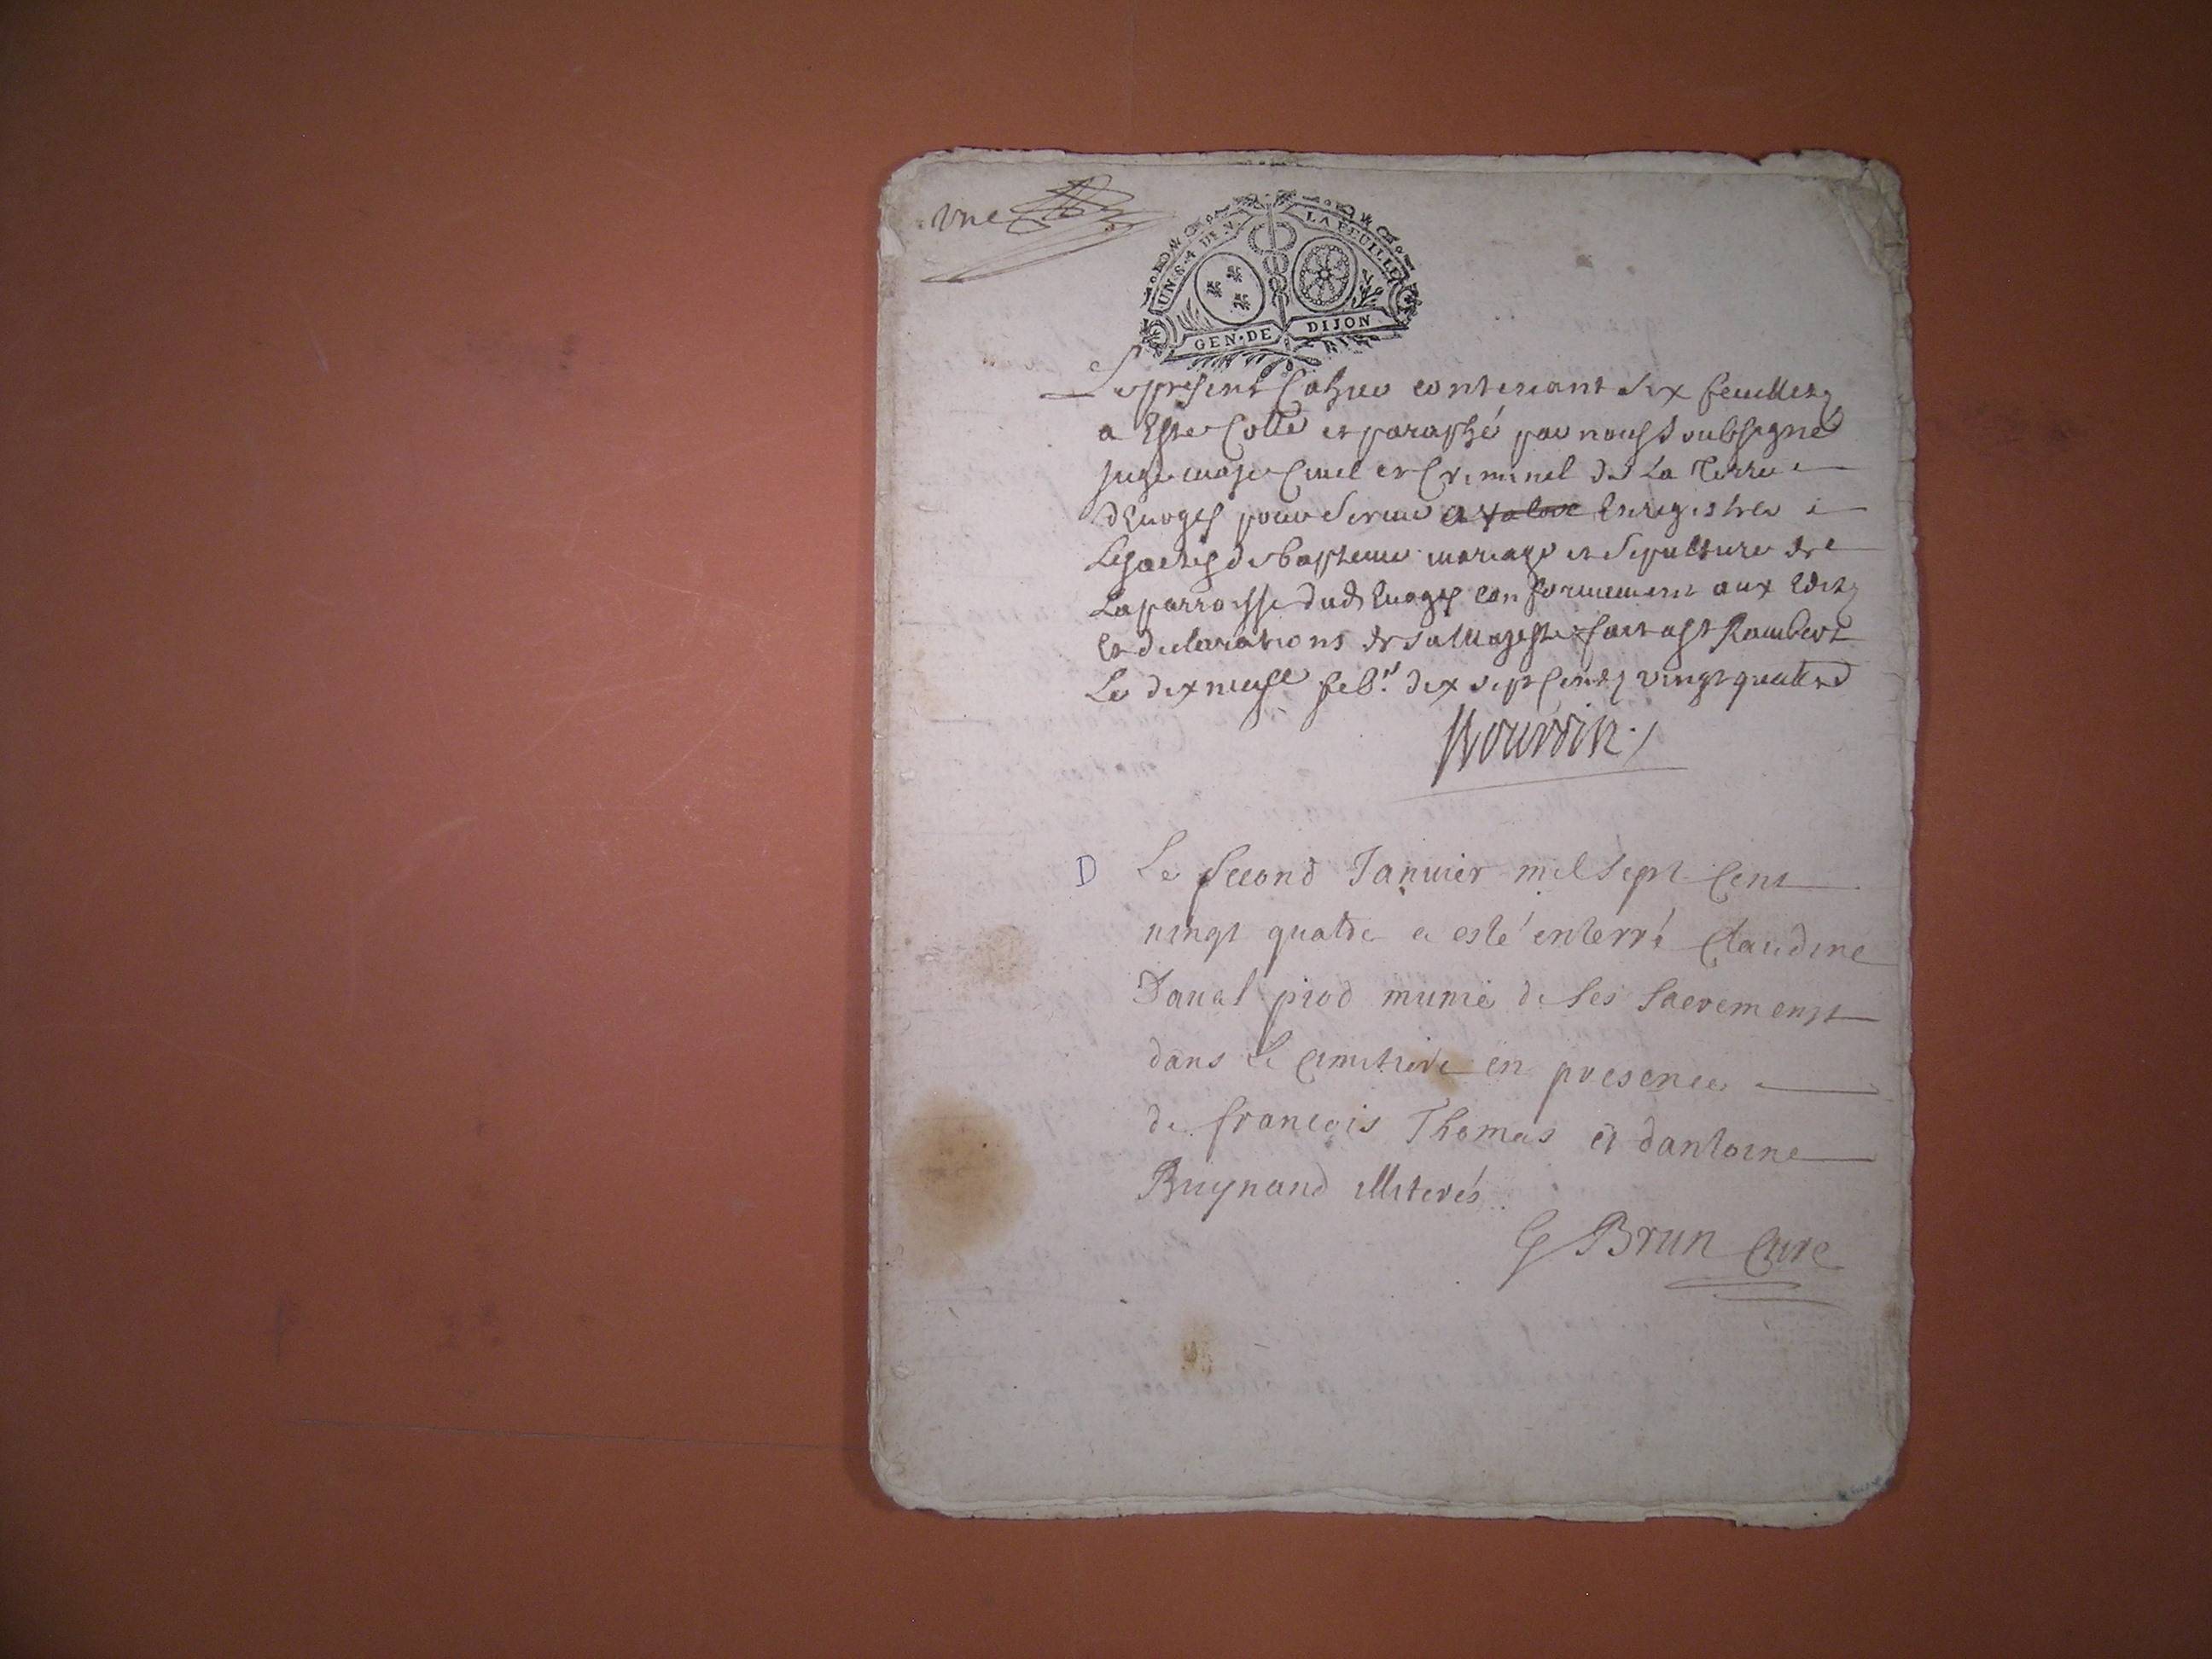 une
UN·S·4·DE·N· LA FEUILLE
GEN·DE DIJON
Le present Cahier contenant six feuilletz
a Esté Cotté et paraphé par nous Soubsigné
Juge maje Civil et Criminel de La Terre
dEvoges pour servir a Enregistrer
Les actes de bapteme mariage et Sepulture de
La parroisse dud Evoges conformement aux Editz
Et declarations de sa Majesté fait a St Rambert
Le dix neufe feb.r dix sept centz vingt quatre
D
Le Second Januier mil sept Cent
uingt quatre a esté enterré Claudine
Jauat munie de ses Sacrements
dans le Cimetiere en presence
de francois Thomas et dantoine
Illiterés
G Brun Curé